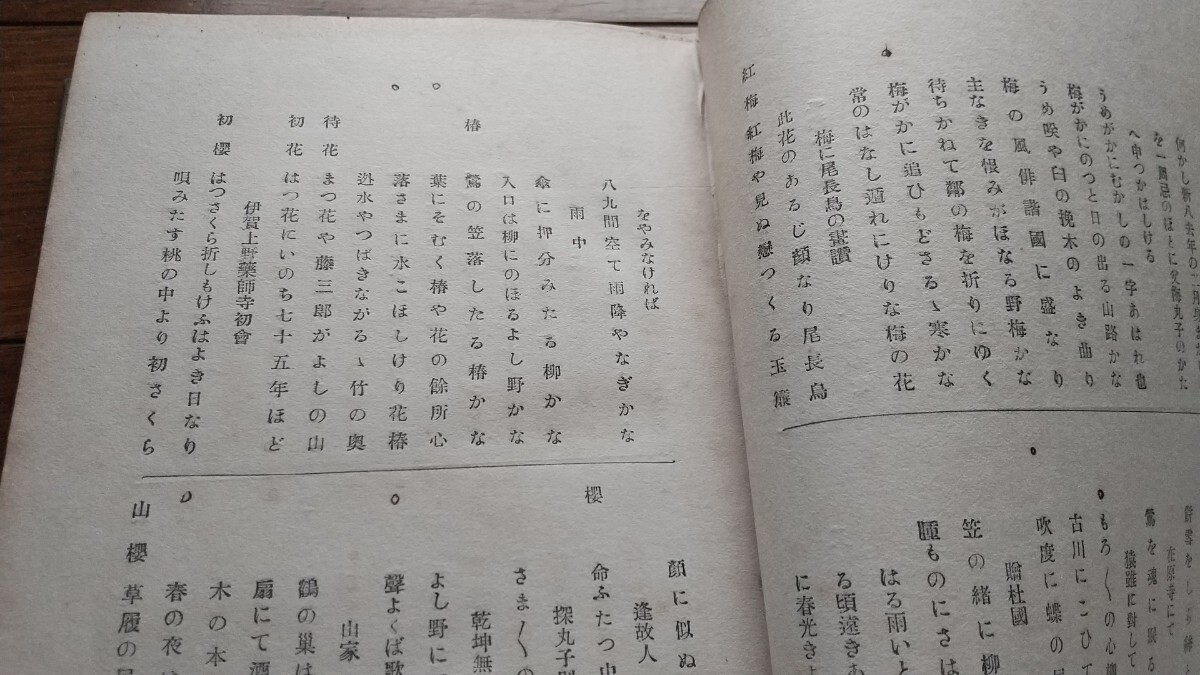 を一周忌のほとに
へ申つかはしける
うめがかにむかしの一字あはれ也
梅がかにのつと日の出る山路かな
うめ咲や臼の挽木のよき曲り
梅の風俳諧國に盛なり
主なきを恨みがほなる野梅かな
待ちかねて鄰の梅を折りにゆく
梅がかに追ひもどさるゝ寒かな
常のはなし遁れにけりな梅の花
梅に尾長鳥の畫讚
此花のあるじ顔なり尾長鳥
紅梅 紅梅や見ぬ戀つくる玉簾
在原寺にて
鶯を魂に眠る
猿雖に對して
もろ〳〵の心柳
古川にこひて
吹度に蝶の
贈杜國
笠の緒に柳
腫ものにさは
はる雨いと
る頃遠きあ
に春光きよ
をやみなければ
八九間空で雨降やなぎかな
雨中
傘に押分みたる柳かな
入口は柳にのぼるよし野かな
椿 鶯の笠落したる椿かな
葉にそむく椿や花の餘所心
落さまに水こほしけり花椿
迯水やつばきながるゝ竹の奥
待花 まつ花や藤三郎がよしの山
初花 はつ花にいのち七十五年ほど
伊賀上野藥師寺初會
初櫻 はつさくら折しもけふはよき日なり
唄みたす桃の中より初さくら
顔に似ぬ
逢故人
櫻 命ふたつ
探丸子
さま〳〵の
乾坤無
よし野に
聲よくば歌
山家
鶴の巢は
扇にて酒
木の本
春の夜
山櫻 草履の